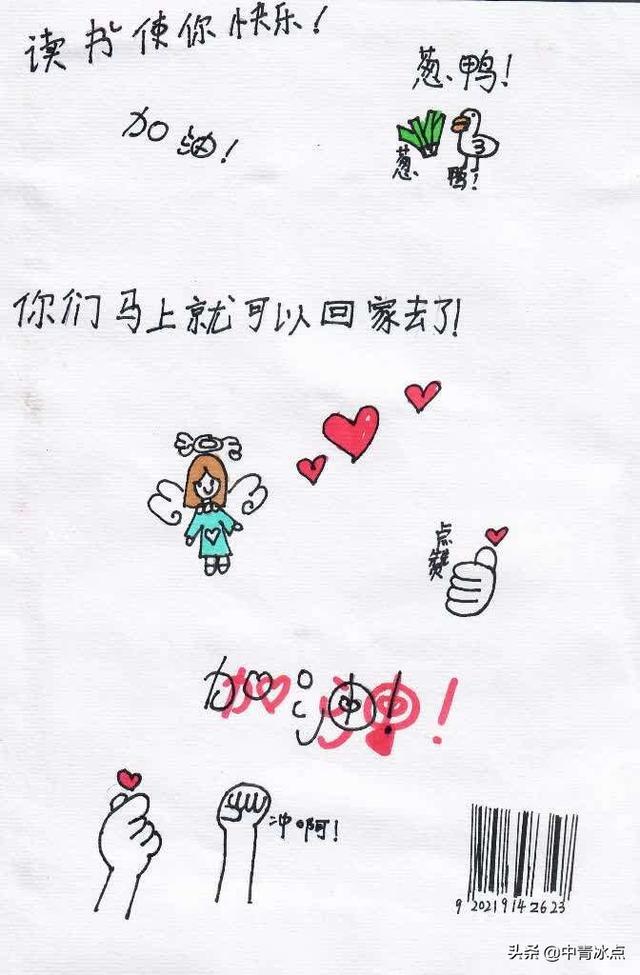 读书使你快乐！
葱鸭！
加油！
葱 鸭！
你们马上就可以回家去了！
点赞
加油！
冲啊！
9 2021914 2623
头条 @中青冰点